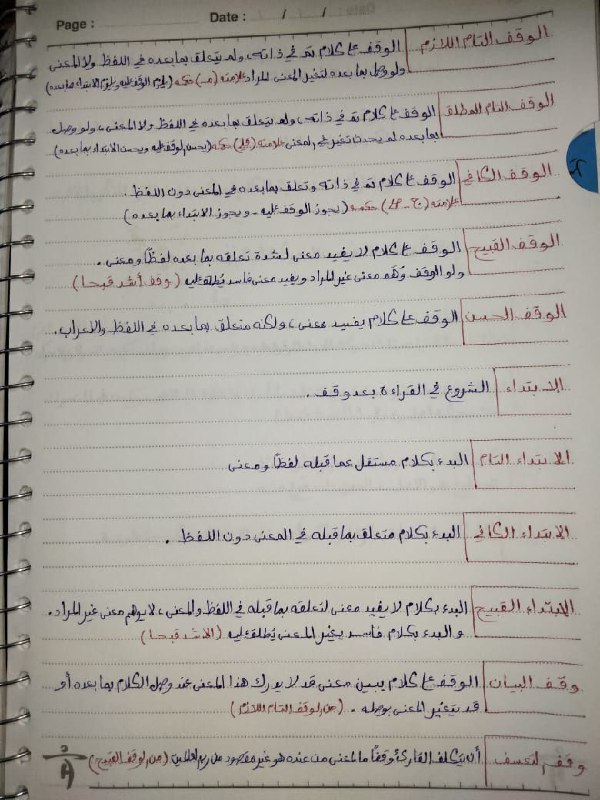 Page : Date : / /
الوقف التام اللازم الوقف على كلام تم في ذاته ولم يتعلق بما بعده في اللفظ ولا المعنى
ولو وصل بما بعده لتغير المعنى المراد علامته (مـ) حكمه (يلزم الوقف عليه ويلزم الابتداء بما بعده)
الوقف التام المطلق الوقف على كلام تم في ذاته، ولم يتعلق بما بعده في اللفظ ولا المعنى، ولو وصل
بما بعده لم يحدث تغير في المعنى علامته (قلى) حكمه (يحسن الوقف عليه ويحسن الابتداء بما بعده)
الوقف الكافي الوقف على كلام تم في ذاته وتعلق بما بعده في المعنى دون اللفظ.
علامته (ج - صلى) حكمه (يجوز الوقف عليه - ويجوز الابتداء بما بعده)
الوقف القبيح الوقف على كلام لا يفيد معنى لشدة تعلقه بما بعده لفظًا ومعنى.
ولو الوقف وَهَّم معنى غير المراد ويفيد معنى فاسد يُطلق عليه (وقف أشد قبحا)
الوقف الحسن الوقف على كلام يفيد معنى، ولكنه متعلق بما بعده في اللفظ والإعراب.
الابتداء الشروع في القراءة بعد وقف.
الابتداء التام البدء بكلام مستقل عما قبله لفظًا ومعنى
الابتداء الكافي البدء بكلام متعلق بما قبله في المعنى دون اللفظ.
الابتداء القبيح البدء بكلام لا يفيد معنى لتعلقه بما قبله في اللفظ والمعنى، لا يوهم معنى غير المراد.
و البدء بكلام فاسد يغير المعنى يُطلق عليه (الأشد قبحا)
وقف البيان الوقف على كلام يبين معنى قد لا يدرك هذا المعنى عند وصل الكلام بما بعده أو
قد يتغير المعنى بوصله. (من الوقف التام اللازم)
وقف التعسف أن يتكلف القارئ وقفًا ما لمعنى من عنده هو غير مقصود من رب العالمين (من الوقف القبيح)